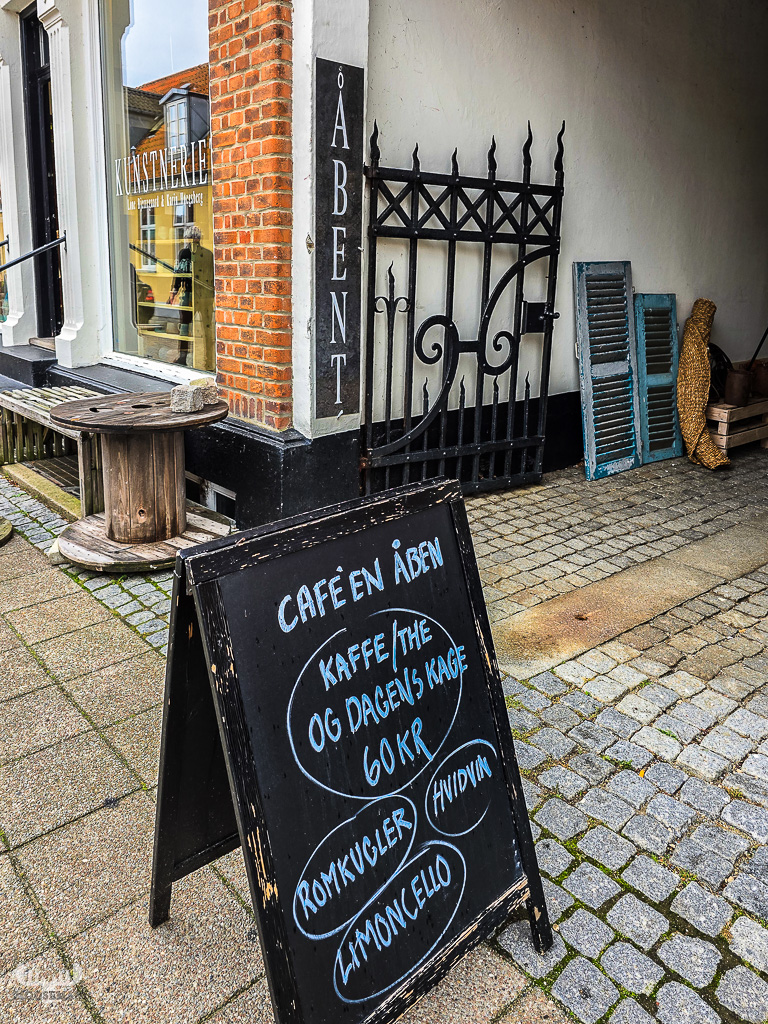 KUNSTNERIE
ÅBENT
CAFÉ'EN ÅBEN
KAFFE/THE
OG DAGENS KAGE
60 KR
HVIDVIN
ROMKUGLER
LIMONCELLO